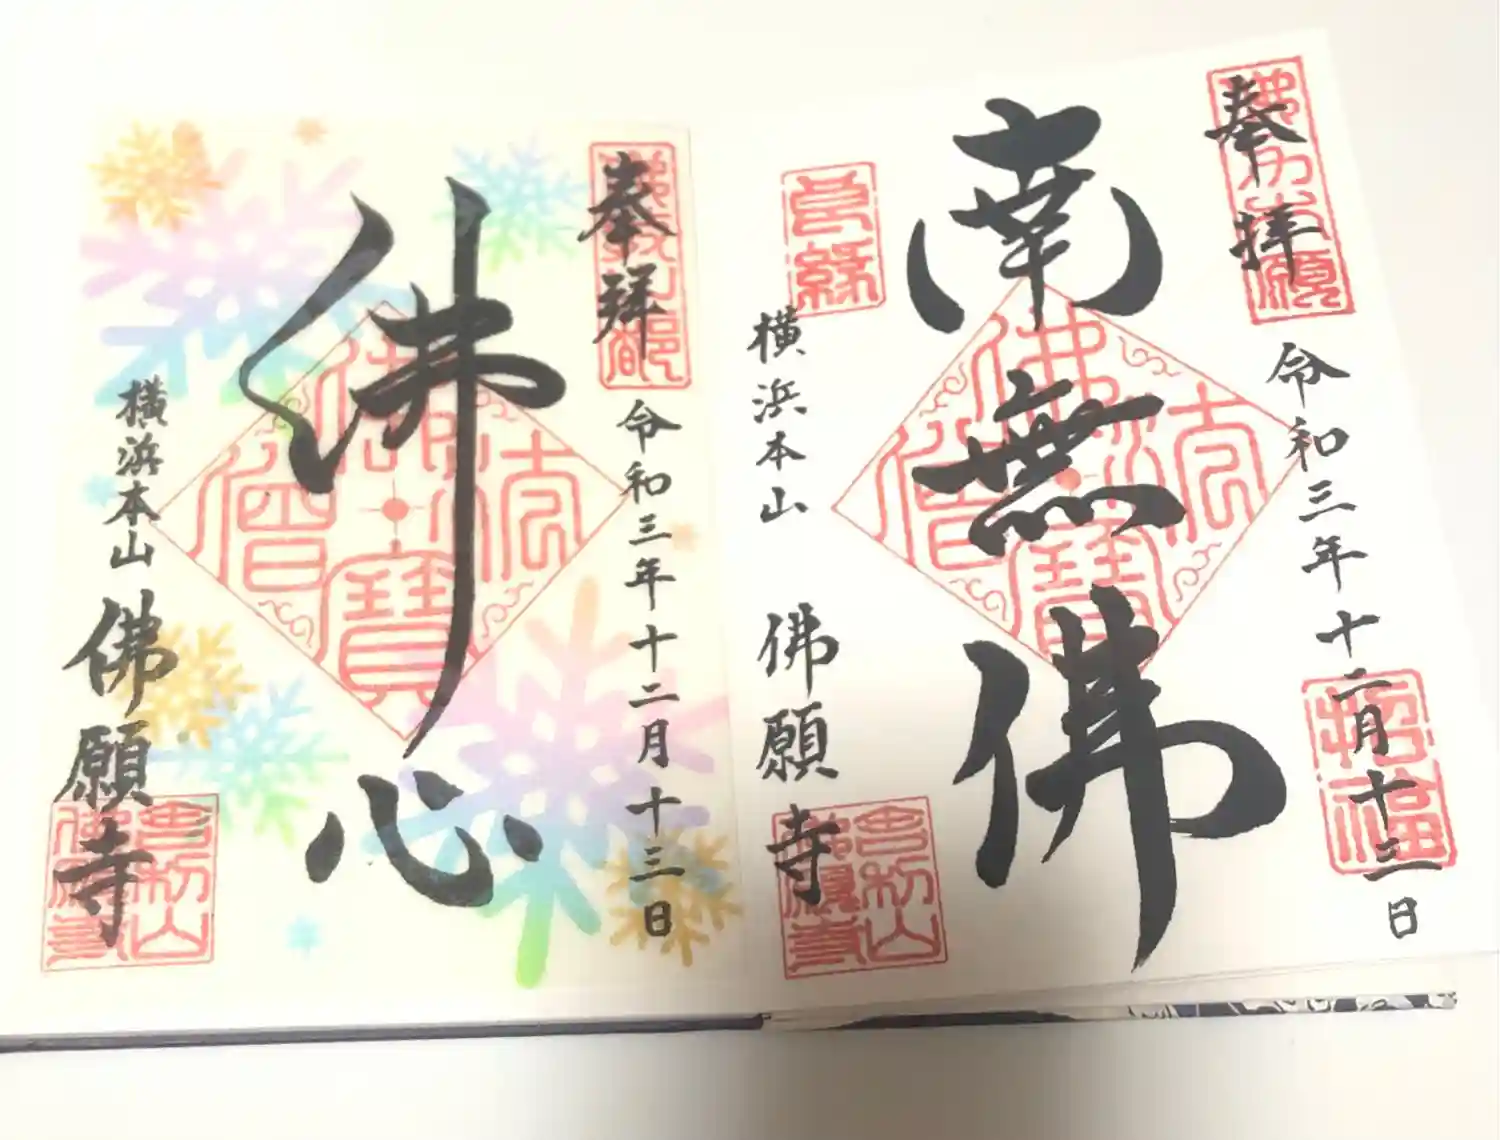 奉拝
令和三年十二月十三日
南無佛
良縁
横浜本山
佛願寺
招福
佛法僧寳
奉拝
令和三年十二月十三日
佛心
横浜本山
佛願寺
佛法僧寳